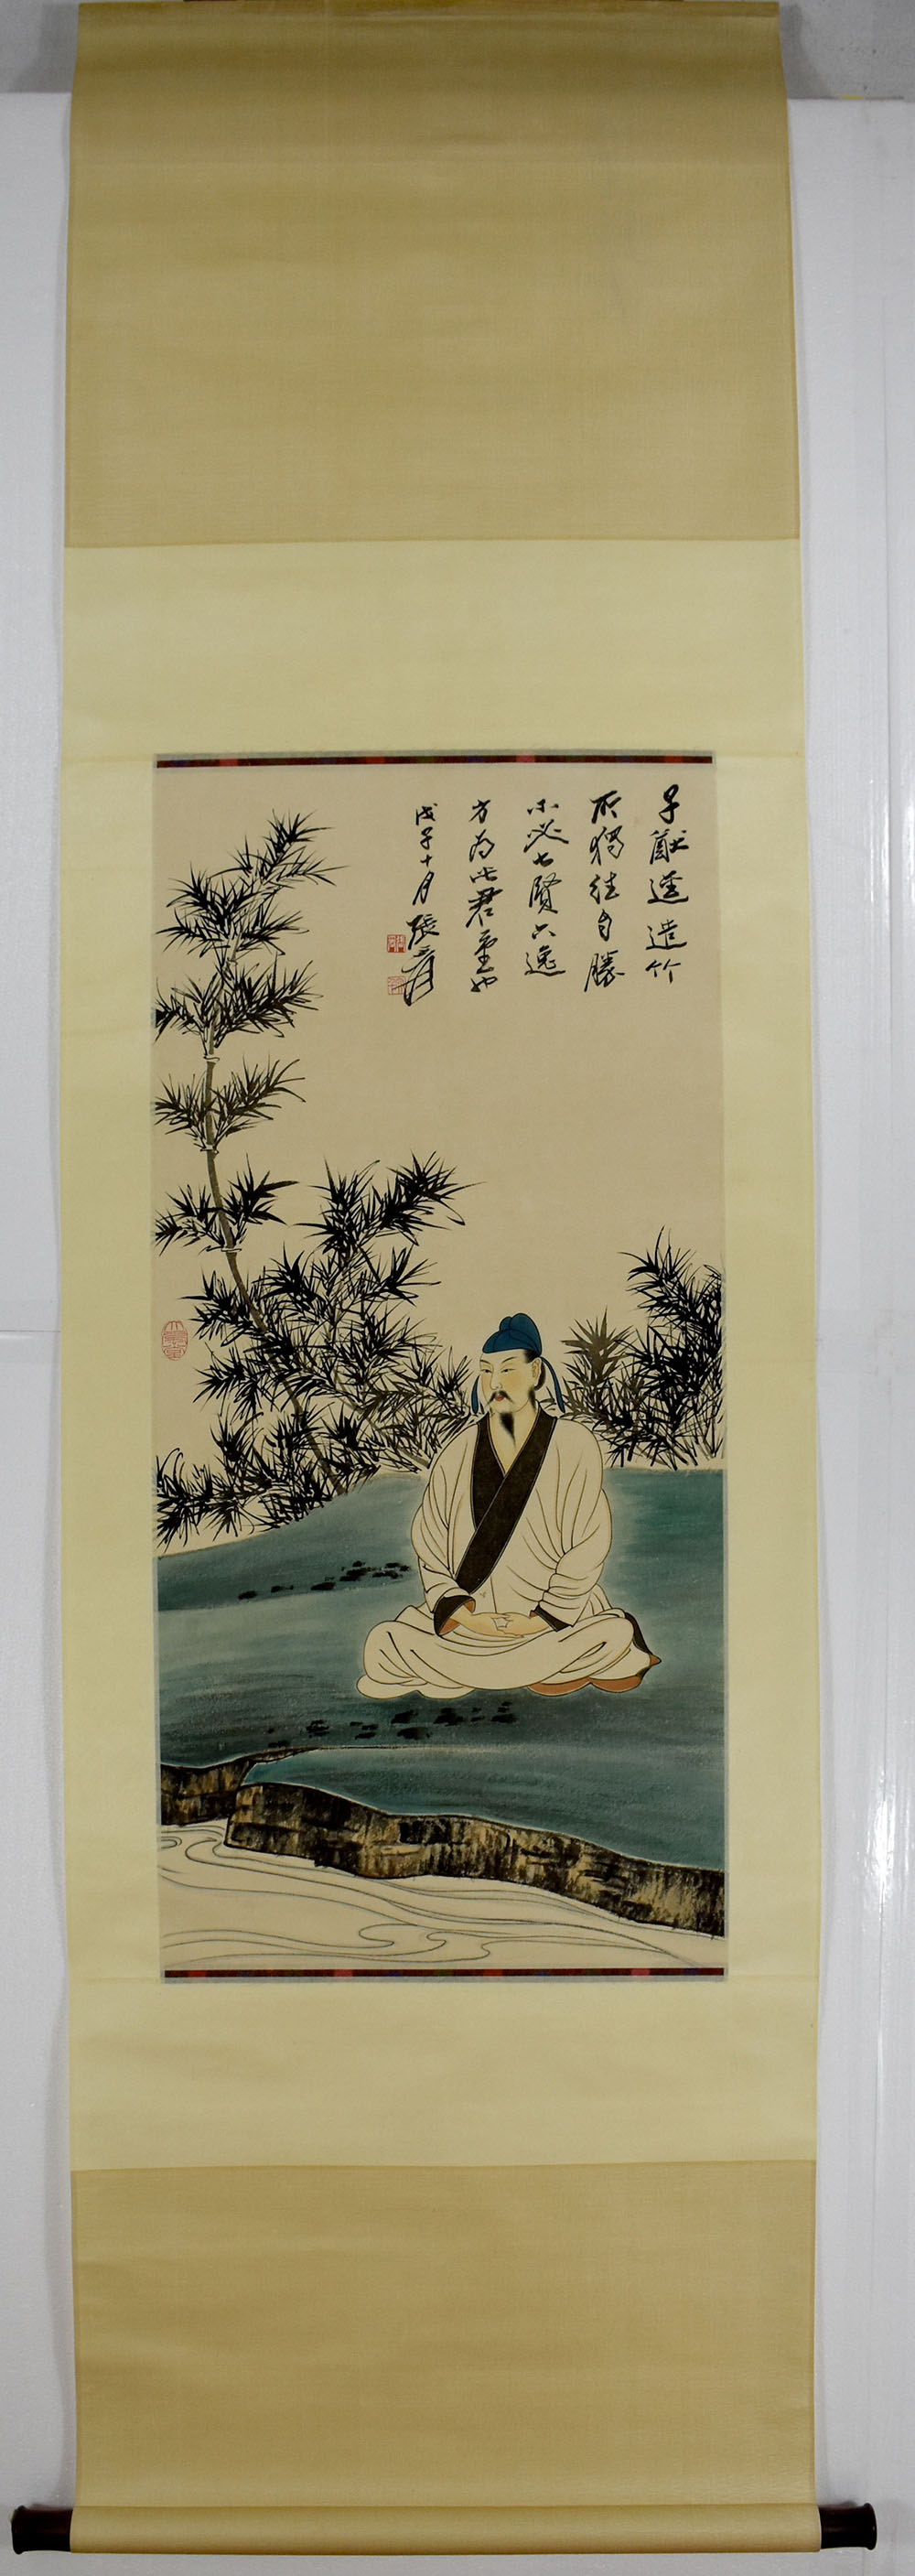 子猷逕造竹
所獨往自勝
不必七賢六逸
方為此君重也
戊子十月張爰